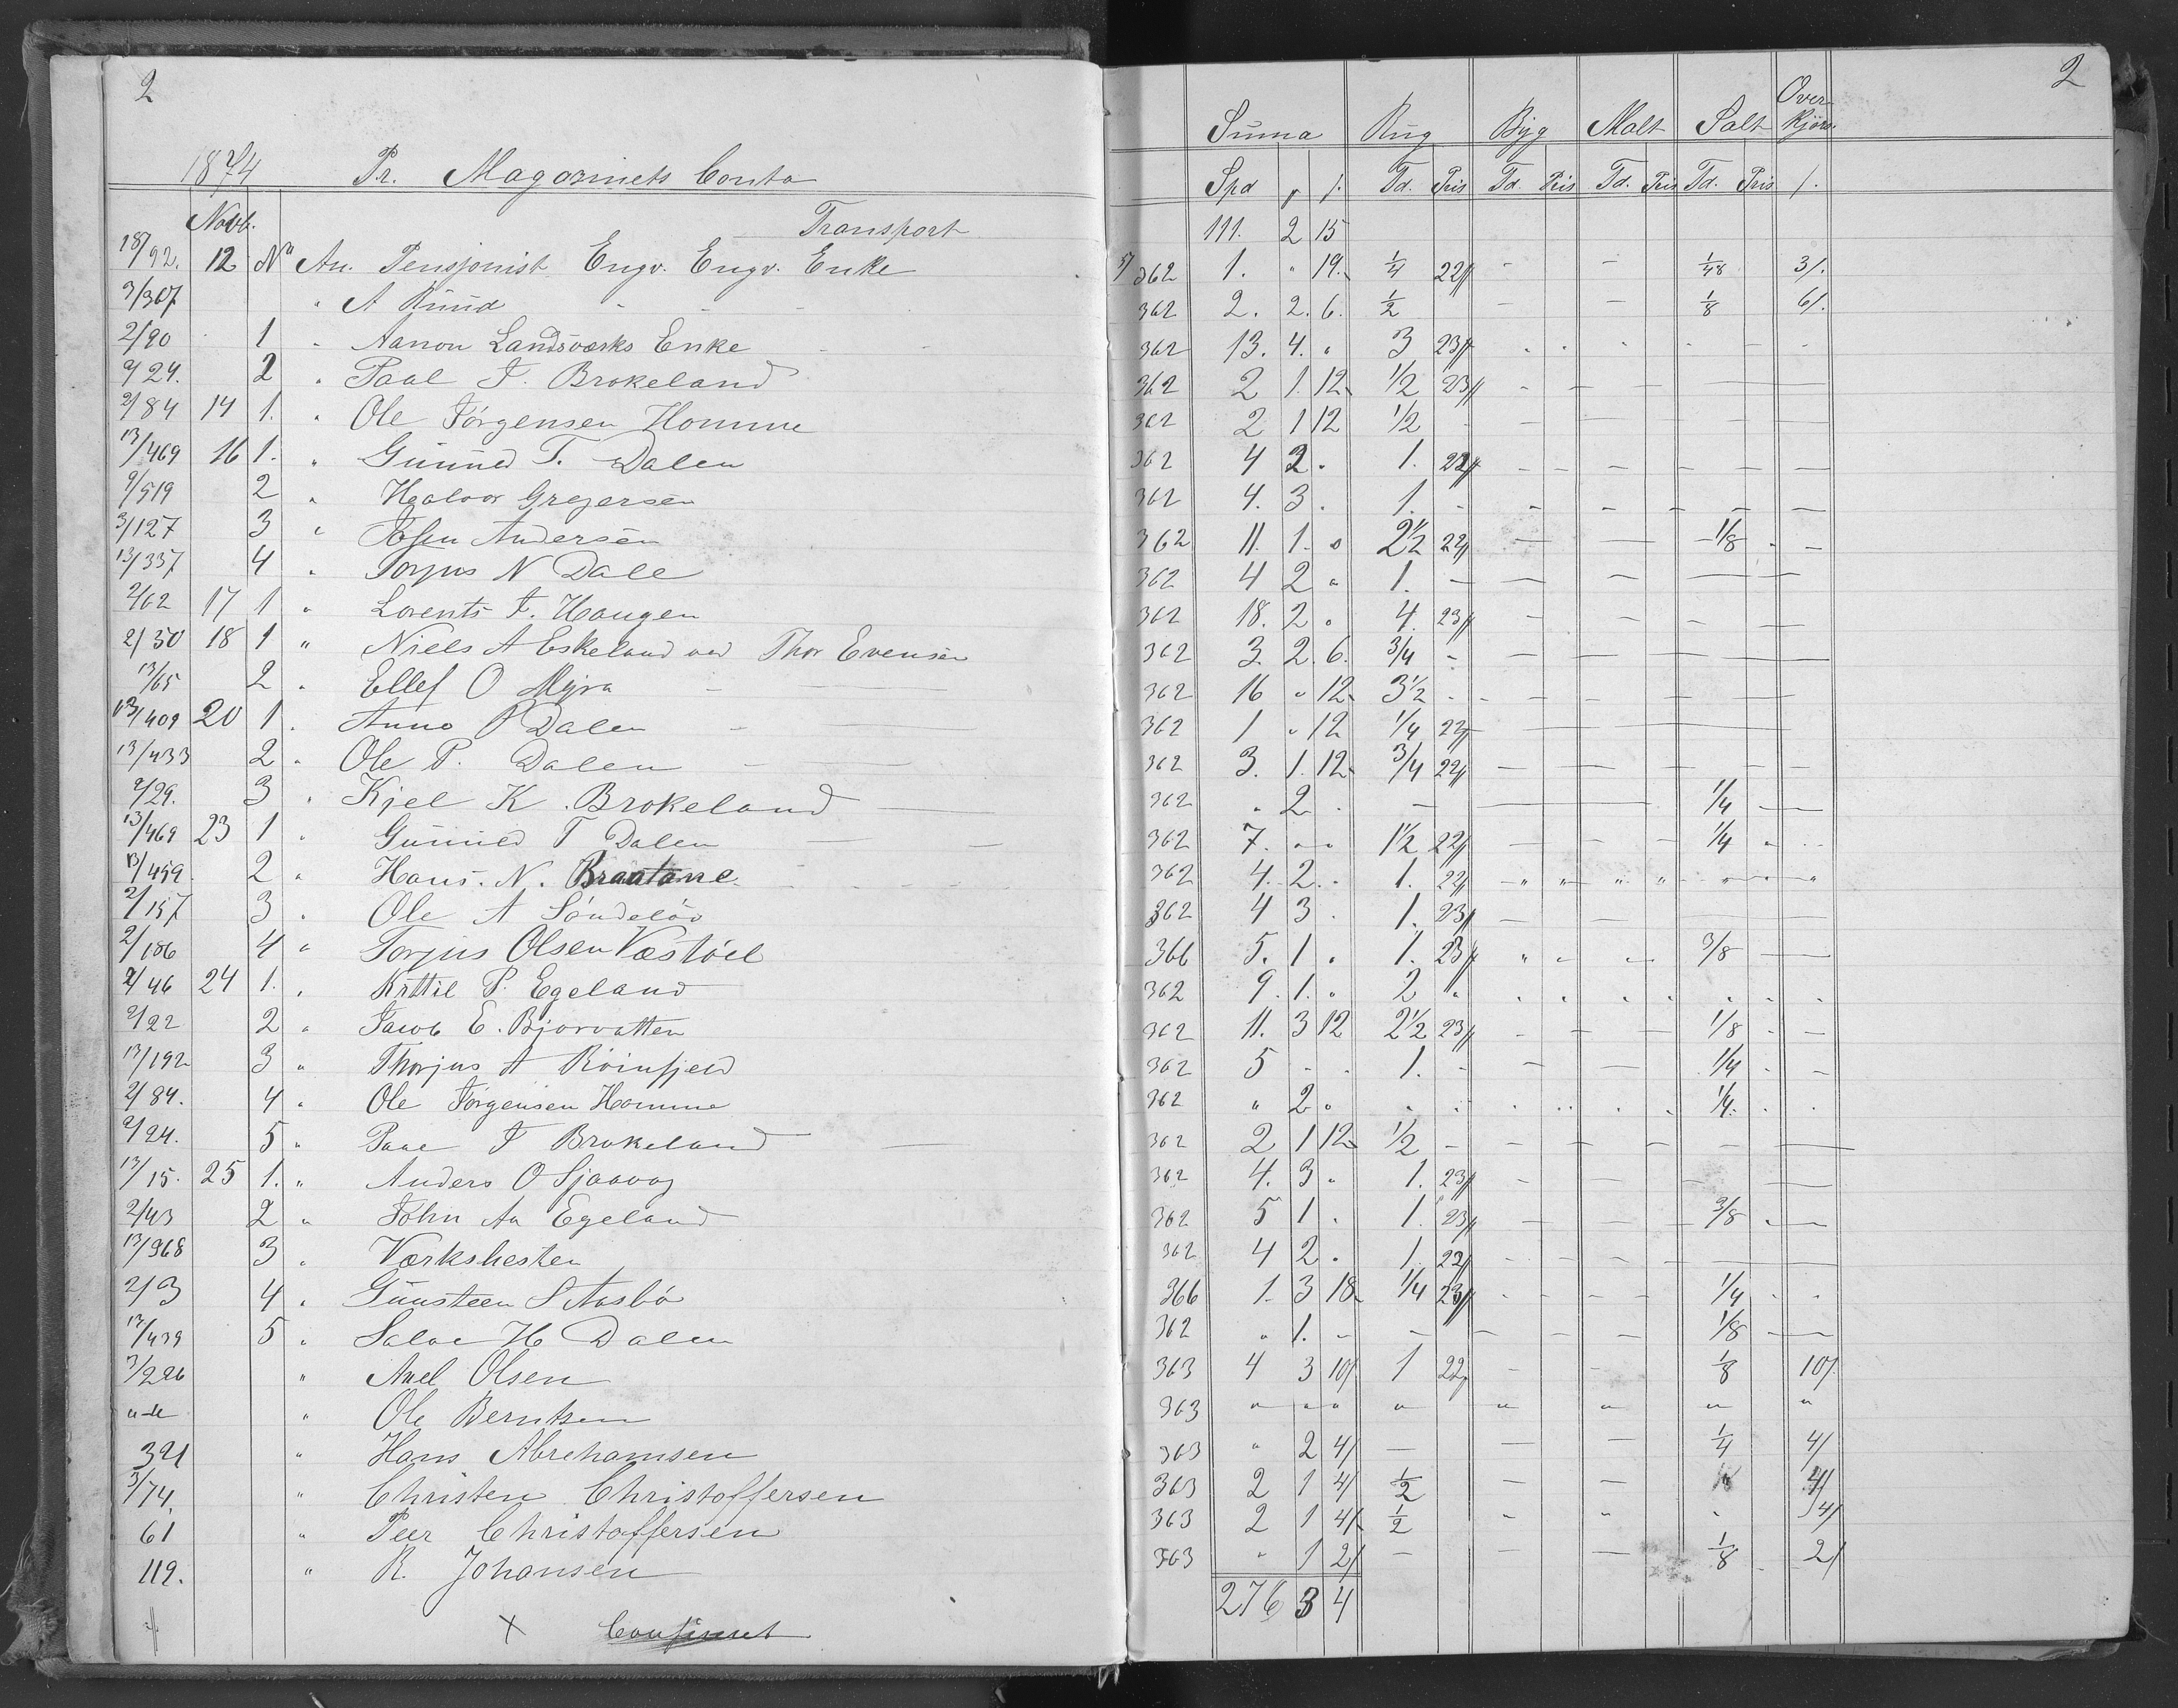 2
1874 Pr. Magazinets Conto
Novb. Transport
18/92. 12 An. Pensjonist Engv. Engv. Enke
3/307 " A Ruud
2/90 1 " Aanon Landsværks Enke
2/24. 2 " Paal J. Brokeland
2/84 14 1. " Ole Jörgensen Homme
13/469 16 1. " Gunuld T. Dalen
2/519 2 " Haalvor Gregersen
3/127 3 " Andersen
13/337 4 " Torjus N Dale
2/62 17 1 " Lorents J. Haugen
2/30 18 1 " Niels A Eskeland ved Thor Evensen
13/65 2 " Ellef O Myra
13/409 20 1 " Anne P Dalen
13/433 2 " Ole P. Dalen
2/29. 3 " Kjel K. Brokeland
13/469 23 1 " Gunuld T Dalen
13/459. 2 " Hans. N. Braatane
2/157 3 " Ole A Söndelöv
2/106 4 " Torjus Olsen Væstöel
2/46 24 1. " Kittil P. Egeland
2/22 2 " Jacob E. Bjorvatten
13/192 3 " Thorjus A Röinfjeld
2/84. 4 " Ole Jörgensen Homme
2/24. 5 " Paal J Brokeland
13/15. 25 1. " Anders O Sjaavaag
2/43 2 " John Aa Egeland
13/368 3 " Værkshesten
2/3 4 " Gunsteen S Aasbö
13/439 5 " Salve H Dalen
3/226 " Axel Olsen
" Ole Berntsen
321 " Hans Abrehamsen
3/74. " Christen Christoffersen
61 " Peer Christoffersen
119. " R. Johansen
x
2
Suma Rug Byg Malt Salt Over-kjörs.
Spd Td. Pris Td. Pris Td. Pris Td. Pris
111. 2 15
362 1. " 19. 1/4 22 - - 1/48 3/.
362 2. 2. 6. 1/2 - - 1/8 6/.
362 13. 4. " 3 23
362 2 1. 12 1/2 23
362 2 1 12 1/2 -
362 4 2 . 1. 22
362 4. 3 . 1. -
362 11. 1. 0 2 1/2 22 1/8
362 4 2 " 1. -
362 18. 2 0 4. 23
362 3. 2. 6. 3/4 -
362 16 " 12 3 1/2
362 1 " 12 1/4 22
362 3. 1. 12 3/4 22
362 " 2 . - 1/4
362 7. " " 1 1/2 22 1/4
362 4. 2. . 1. 22
362 4 3 . 1. 23
366 5. 1 . 1. 23 3/8
362 9. 1. " 2 "
362 11. 3 12 2 1/2 23 1/8
362 5 - . 1. - 1/4
362 " 2 " 1/4.
362 2 1 12 1/2 -
362 4. 3 " 1. 23
362 5 1 . 1. 23 3/8
362 4 2 . 1. 22
366 1. 3 18 1/4 23 1/4
362 " 1. - - 1/8
363 4 3 10/ 1 22 1/8 10/
363 " " " " " " " "
363 " 2 4/ - 1/4 4/
363 2 1 4/ 1/2 4/
363 2 1 4/ 1/2 " " " 4/
363 " 1 2/ - - - 1/8 2/
276 3 4